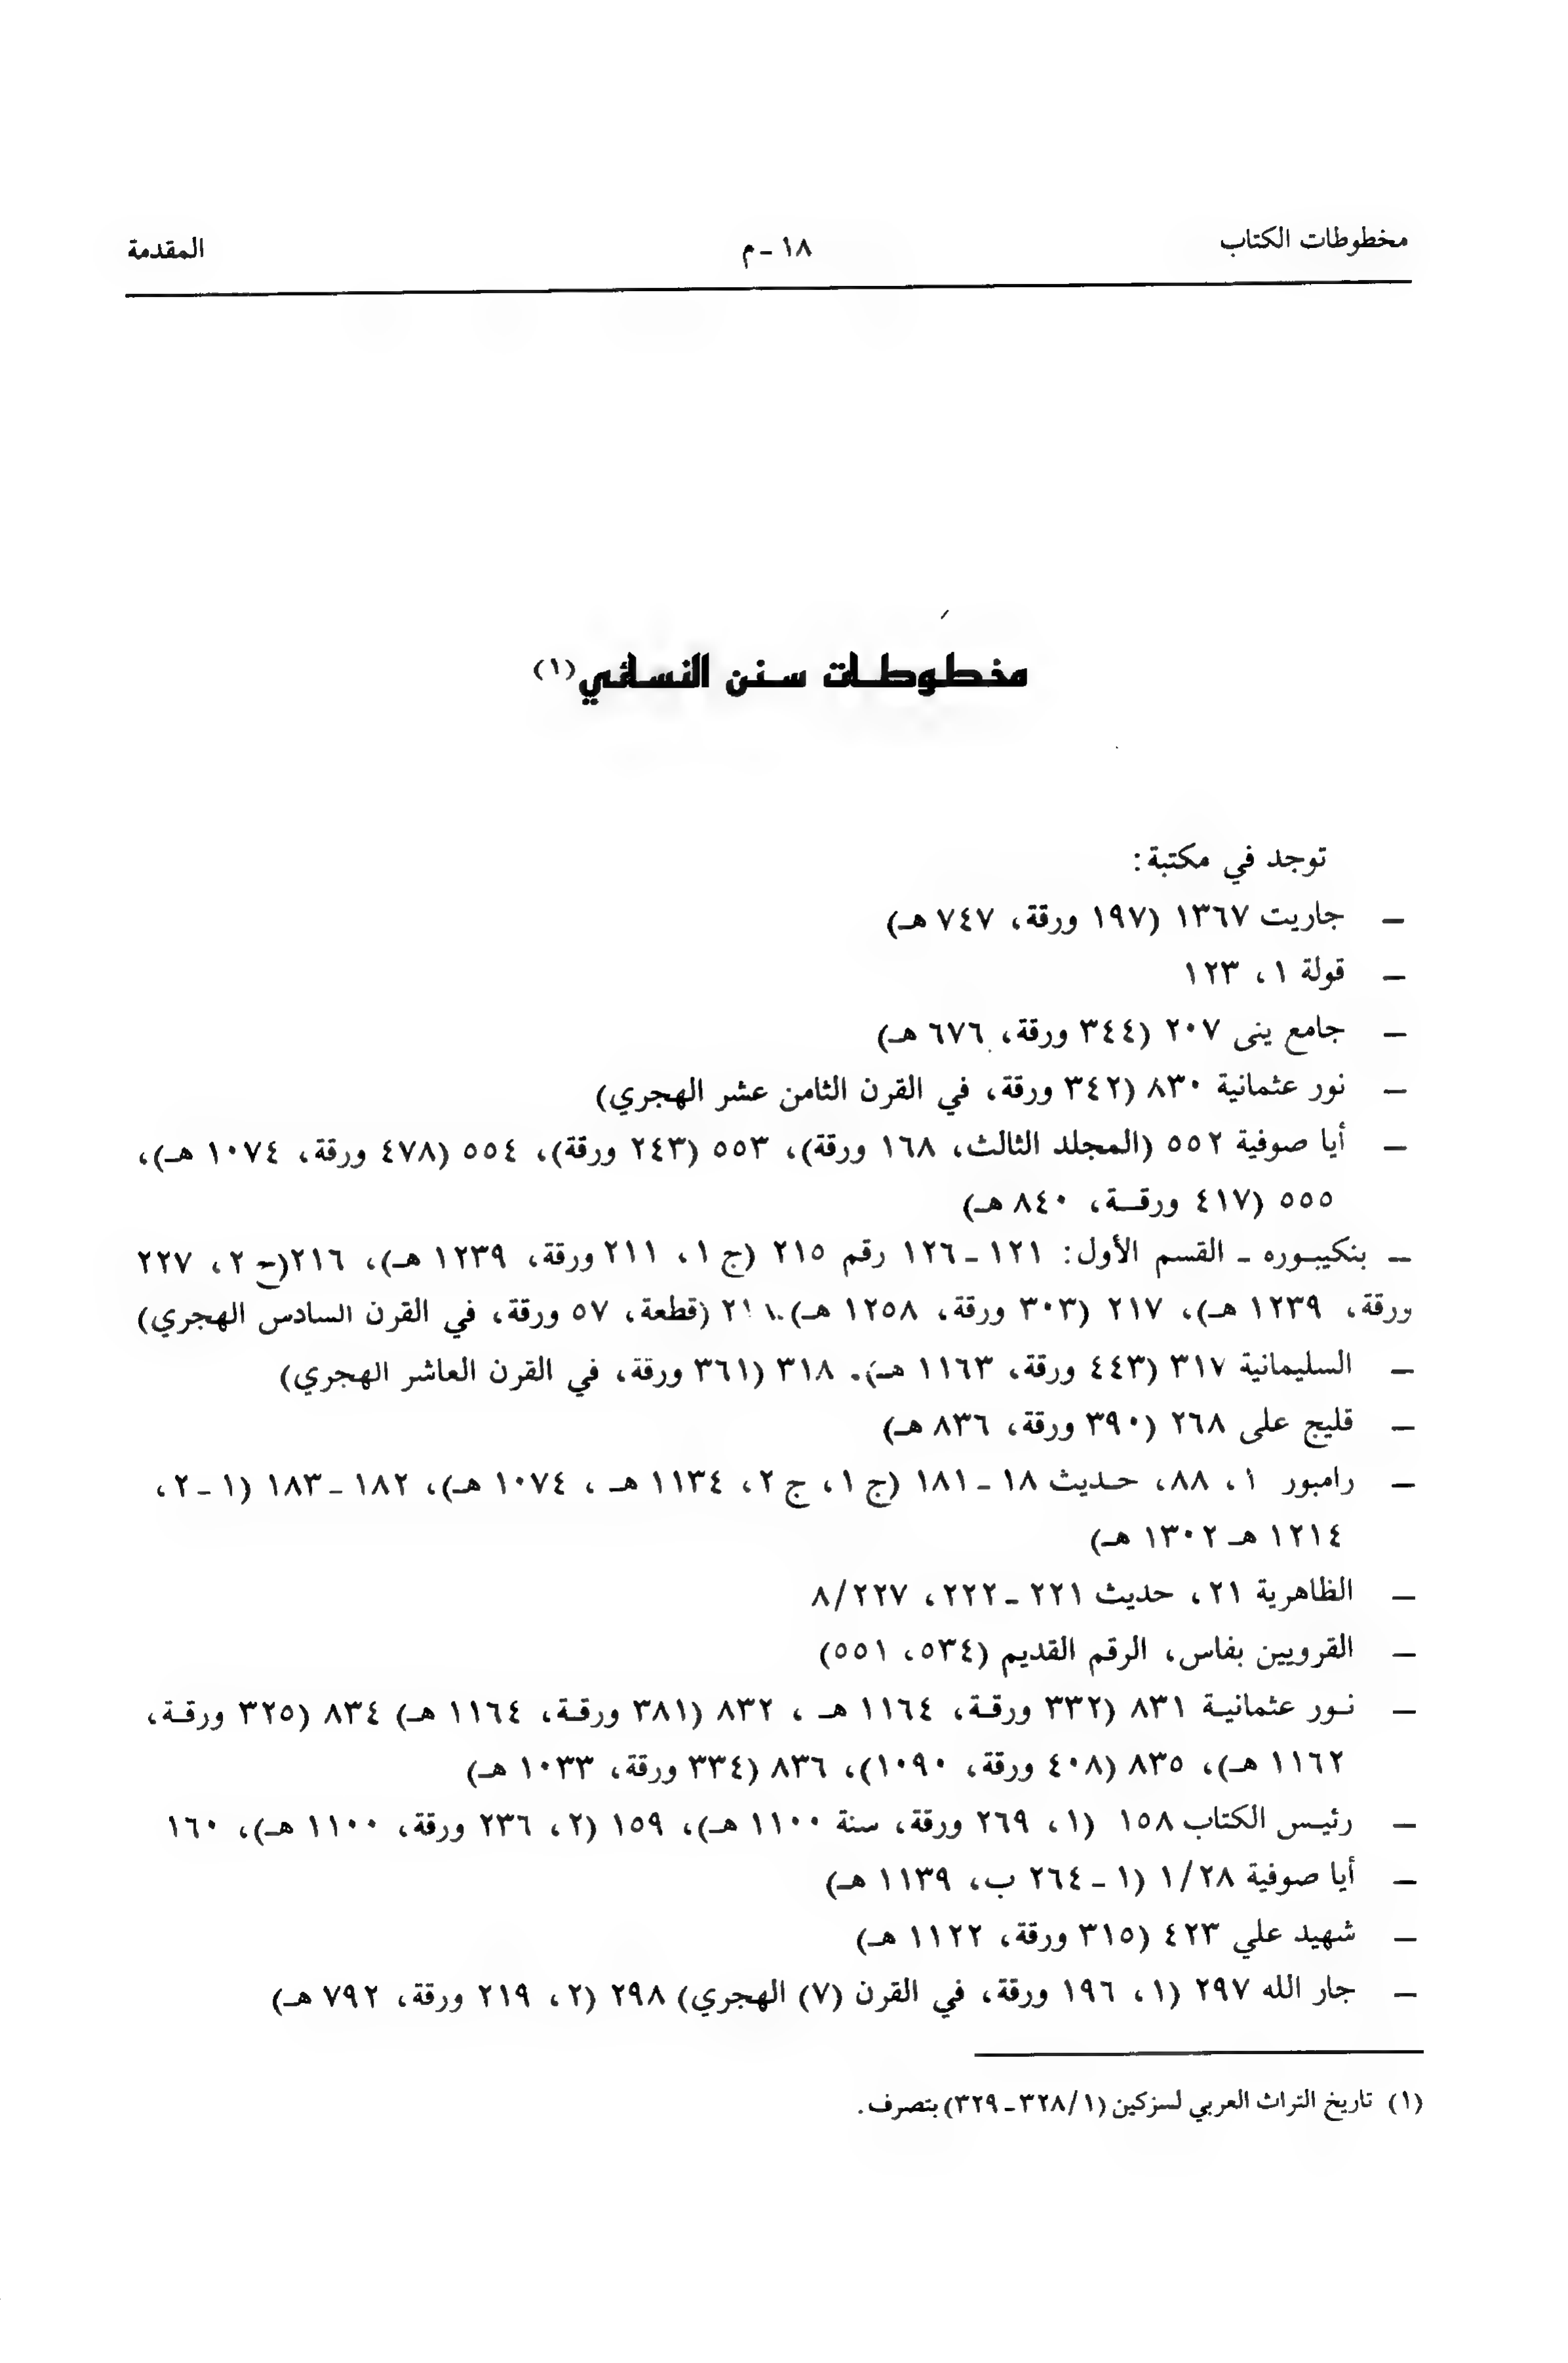 مخطوطات الكتاب
١٨ - م
المقدمة
مخطوطات سنن النسائي (١)
توجد في مكتبة:
— جاريت ١٣٦٧ (١٩٧ ورقة، ٧٤٧ هـ)
— قولة ١، ١٢٣
— جامع ينى ٢٠٧ (٣٤٤ ورقة، ٦٧٦ هـ)
— نور عثمانية ٨٣٠ (٣٤٢ ورقة، في القرن الثامن عشر الهجري)
— أيا صوفية ٥٥٢ (المجلد الثالث، ١٦٨ ورقة)، ٥٥٣ (٢٤٣ ورقة)، ٥٥٤ (٤٧٨ ورقة، ١٠٧٤ هـ)،
٥٥٥ (٤١٧ ورقة، ٨٤٠ هـ)
— بنكيبوره - القسم الأول: ١٢١ - ١٢٦ رقم ٢١٥ (ج ١، ٢١١ ورقة، ١٢٣٩ هـ)، ٢١٦ (ج ٢، ٢٢٧
ورقة، ١٢٣٩ هـ)، ٢١٧ (٣٠٣ ورقة، ١٢٥٨ هـ) (قطعة، ٥٧ ورقة، في القرن السادس الهجري)
— السليمانية ٣١٧ (٤٤٣ ورقة، ١١٦٣ هـ). ٣١٨ (٣٦١ ورقة، في القرن العاشر الهجري)
— قليج على ٢٦٨ (٣٩٠ ورقة، ٨٣٦ هـ)
— رامبور ١، ٨٨، حديث ١٨ - ١٨١ (ج ١، ج ٢، ١١٣٤ هـ، ١٠٧٤ هـ)، ١٨٢ - ١٨٣ (١ - ٢،
١٢١٤ هـ ١٣٠٢ هـ)
— الظاهرية ٢١، حديث ٢٢١ - ٢٢٢، ٨/٢٢٧
— القرويين بفاس، الرقم القديم (٥٣٤، ٥٥١)
— نور عثمانية ٨٣١ (٣٣٢ ورقة، ١١٦٤ هـ، ٨٣٢ (٣٨١ ورقة، ١١٦٤ هـ) ٨٣٤ (٣٢٥ ورقة،
١١٦٢ هـ)، ٨٣٥ (٤٠٨ ورقة، ١٠٩٠)، ٨٣٦ (٣٣٤ ورقة، ١٠٣٣ هـ)
— رئيس الكتاب ١٥٨ (١، ٢٦٩ ورقة، سنة ١١٠٠ هـ)، ١٥٩ (٢، ٢٣٦ ورقة، ١١٠٠ هـ)، ١٦٠
— أيا صوفية ١/٢٨ (١ - ٢٦٤ ب، ١١٣٩ هـ)
— شهيد علي ٤٢٣ (٣١٥ ورقة، ١١٢٢ هـ)
— جار الله ٢٩٧ (١، ١٩٦ ورقة، في القرن (٧) الهجري) ٢٩٨ (٢، ٢١٩ ورقة، ٧٩٢ هـ)
(١) تاريخ التراث العربي لسزكين (١/٣٢٨ - ٣٢٩) بتصرف.